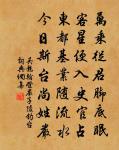 萬乘從君脚底眠
客星侵入史官占
東都基業隨流水
今日斯台尚姓嚴
吳龍翰登嚴子陵釣台
詞典網集